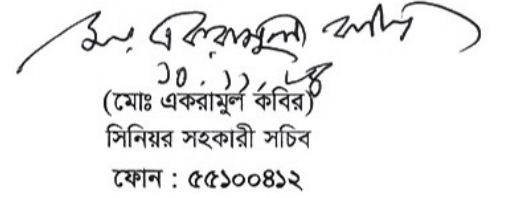 মোঃ একরামুল কবির
১০.১১.২৪
(মোঃ একরামুল কবির)
সিনিয়র সহকারী সচিব
ফোন : ৫৫১০০৪১২